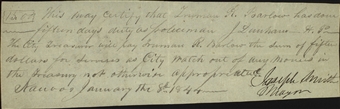 $15.00 This may certify that Truman R. Barlow has done
fifteen days duty as policeman J Dunham H. P.
The City Treasurer will pay Truman R. Barlow the sum of fifteen
dollars for services as City Watch out of any monies in
the Treasury not otherwise appropriated
Joseph Smith
Nauvoo January the 8th 1844
Mayor